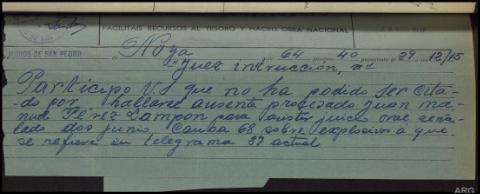 FACILITAIS RECURSOS AL TESORO Y HACEIS OBRA NACIONAL
MONOS DE SAN PEDRO
Noya 64 40 29 12/15
Juez instruccion,
Participo VS que no ha podido ser cita-
do por hallarse ausente procesado Juan ma-
nuel Pérez Lampon para asistir juicio oral seña-
lado dos junio. Causa 68 sobre explosivos a que
se refiere su telegrama 87 actual
ARG